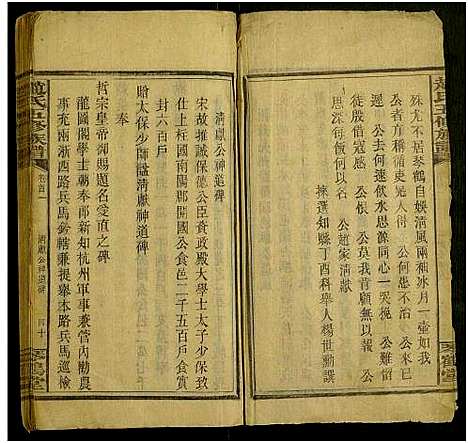 趙氏五修族譜
殊尤不居琴鶴自娛清風兩袖冰月一壺如我
公者方稱循吏先人
遲公去恨催飲水思源同心一哭挽
公叢冠感
公悵
公莫我肯顧無以報
公趙家清獻
思深每飯何以名
揀選知縣丁酉科舉人楊世勳譔
琴鶴堂
清獻公神道碑
宋故推誠保德公臣資政殿大學士太子少保致
仕上柱國南陽郡開國公食邑二千五百戶食實
封六百戶
賜太保少師謚清獻神道碑
奉
哲宗皇帝御賜題名愛直之碑
龍圖閣學士朝奉郎新知杭州軍事兼管內勸農
事充兩浙西路兵馬鈐轄兼提舉本路兵馬巡檢
趙氏五修族譜
卷首一
清獻公神道碑
四十
琴鶴堂